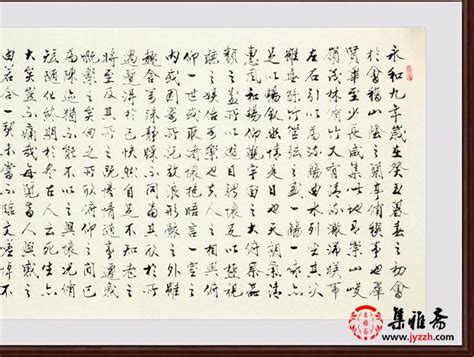 永和九年歲在癸丑暮春之初會
於會稽山陰之蘭亭脩禊事也羣
賢畢至少長咸集此地有崇山峻
領茂林脩竹又有清流激湍映帶
左右引以為流觴曲水列坐其次
雖無絲竹管弦之盛一觴一詠亦
足以暢敘幽情是日也天朗氣清
惠風和暢仰觀宇宙之大俯察品
類之盛所以遊目騁懷足以極視
聽之娛信可樂也夫人之相與俯
仰一世或取諸懷抱悟言一室之
內或因寄所託放浪形骸之外雖
趣舍萬殊靜躁不同當其欣於所
遇暫得於己快然自足不知老之
將至及其所之既惓情隨事遷感
慨係之矣向之所欣俛仰之間已
為陳迹猶不能不以之興懷況脩
短隨化終期於盡古人云死生亦
大矣豈不痛哉每覽昔人興感之
由若合一契未嘗不臨文嗟悼不
集雅斋
www.jyzzh.com